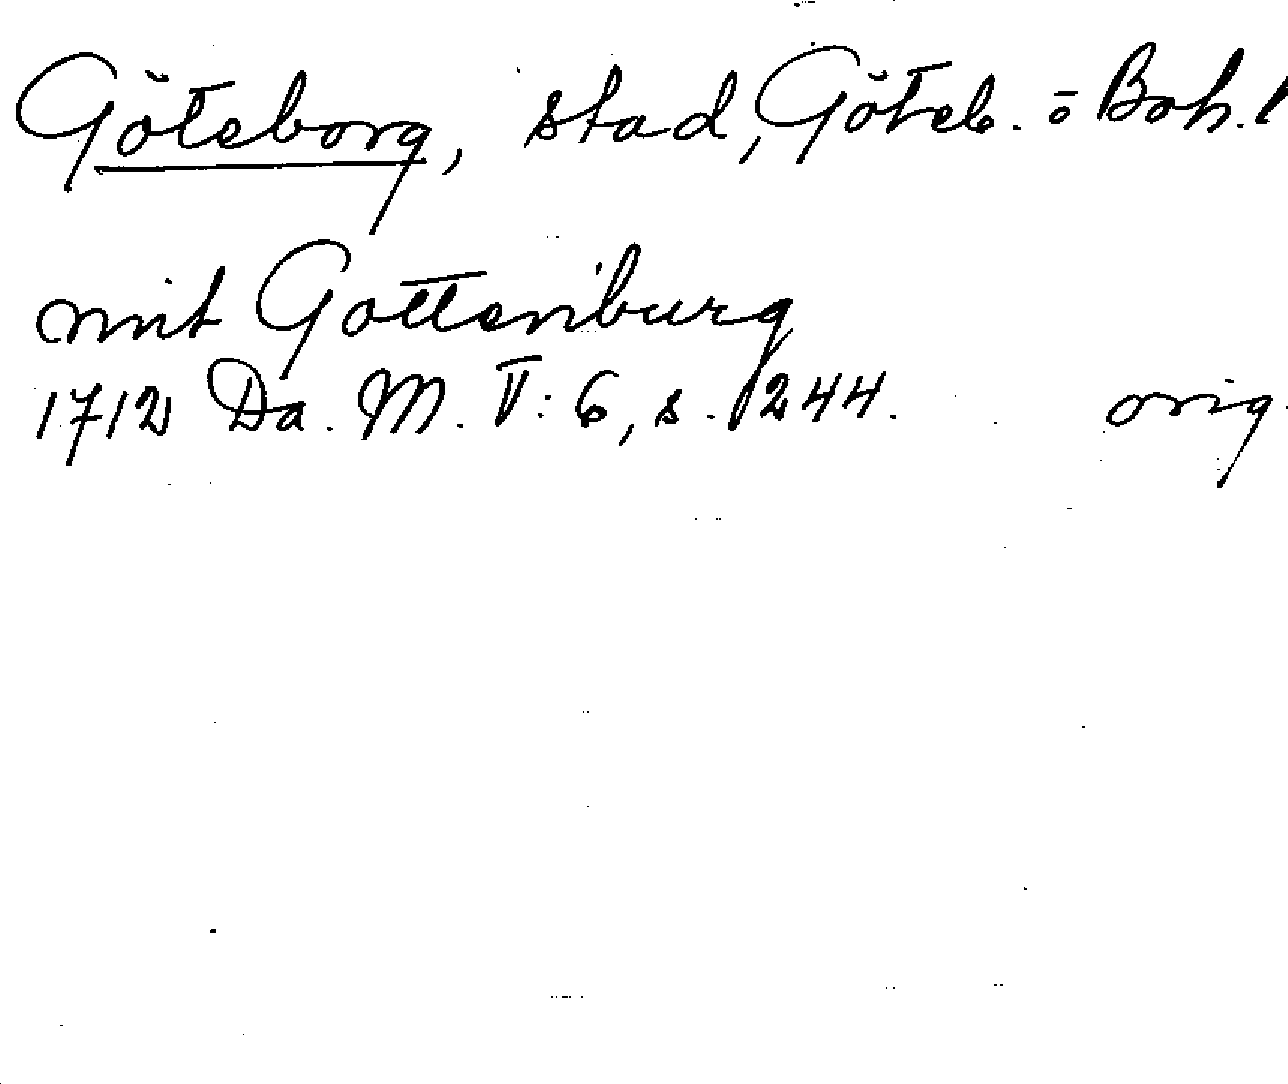 Göteborg, stad, Göteb. o Boh. l
mit Gottenburg
1712 Da. M. V: 6, s. 1244. orig.